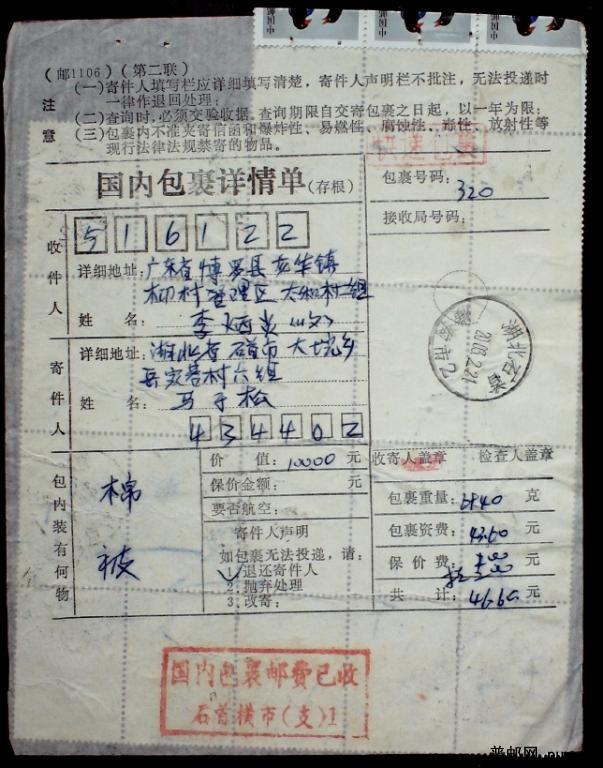 (邮1106)(第二联)
注意
(一)寄件人填写栏应详细填写清楚,寄件人声明栏不批注,无法投递时
一律作退回处理;
(二)查询时,必须交验收据。查询期限自交寄包裹之日起,以一年为限;
(三)包裹内不准夹寄信函和爆炸性、易燃性、腐蚀性、毒性、放射性等
现行法律法规禁寄的物品。
快速包裹
国内包裹详情单(存根)
包裹号码:320
接收局号码:
收件人
516122
详细地址:广东省博罗县龙华镇
柳村管理区大和村组
姓 名:李
寄件人
详细地址:湖北省石首市大垸乡
岳家 村六组
姓 名:马于松
434402
湖北石首
2003.2.21
包内装有何物
棉被
价 值:10000元
保价金额: 元
要否航空:
寄件人声明
如包裹无法投递,请:
1.退还寄件人
2.抛弃处理
3.改寄:
收寄人盖章 检查人盖章
包裹重量: 克
包裹资费:43.60元
保 价 费: 元
共 计:46.60元
国内包裹邮费已收
石首横市(支)1
普邮网